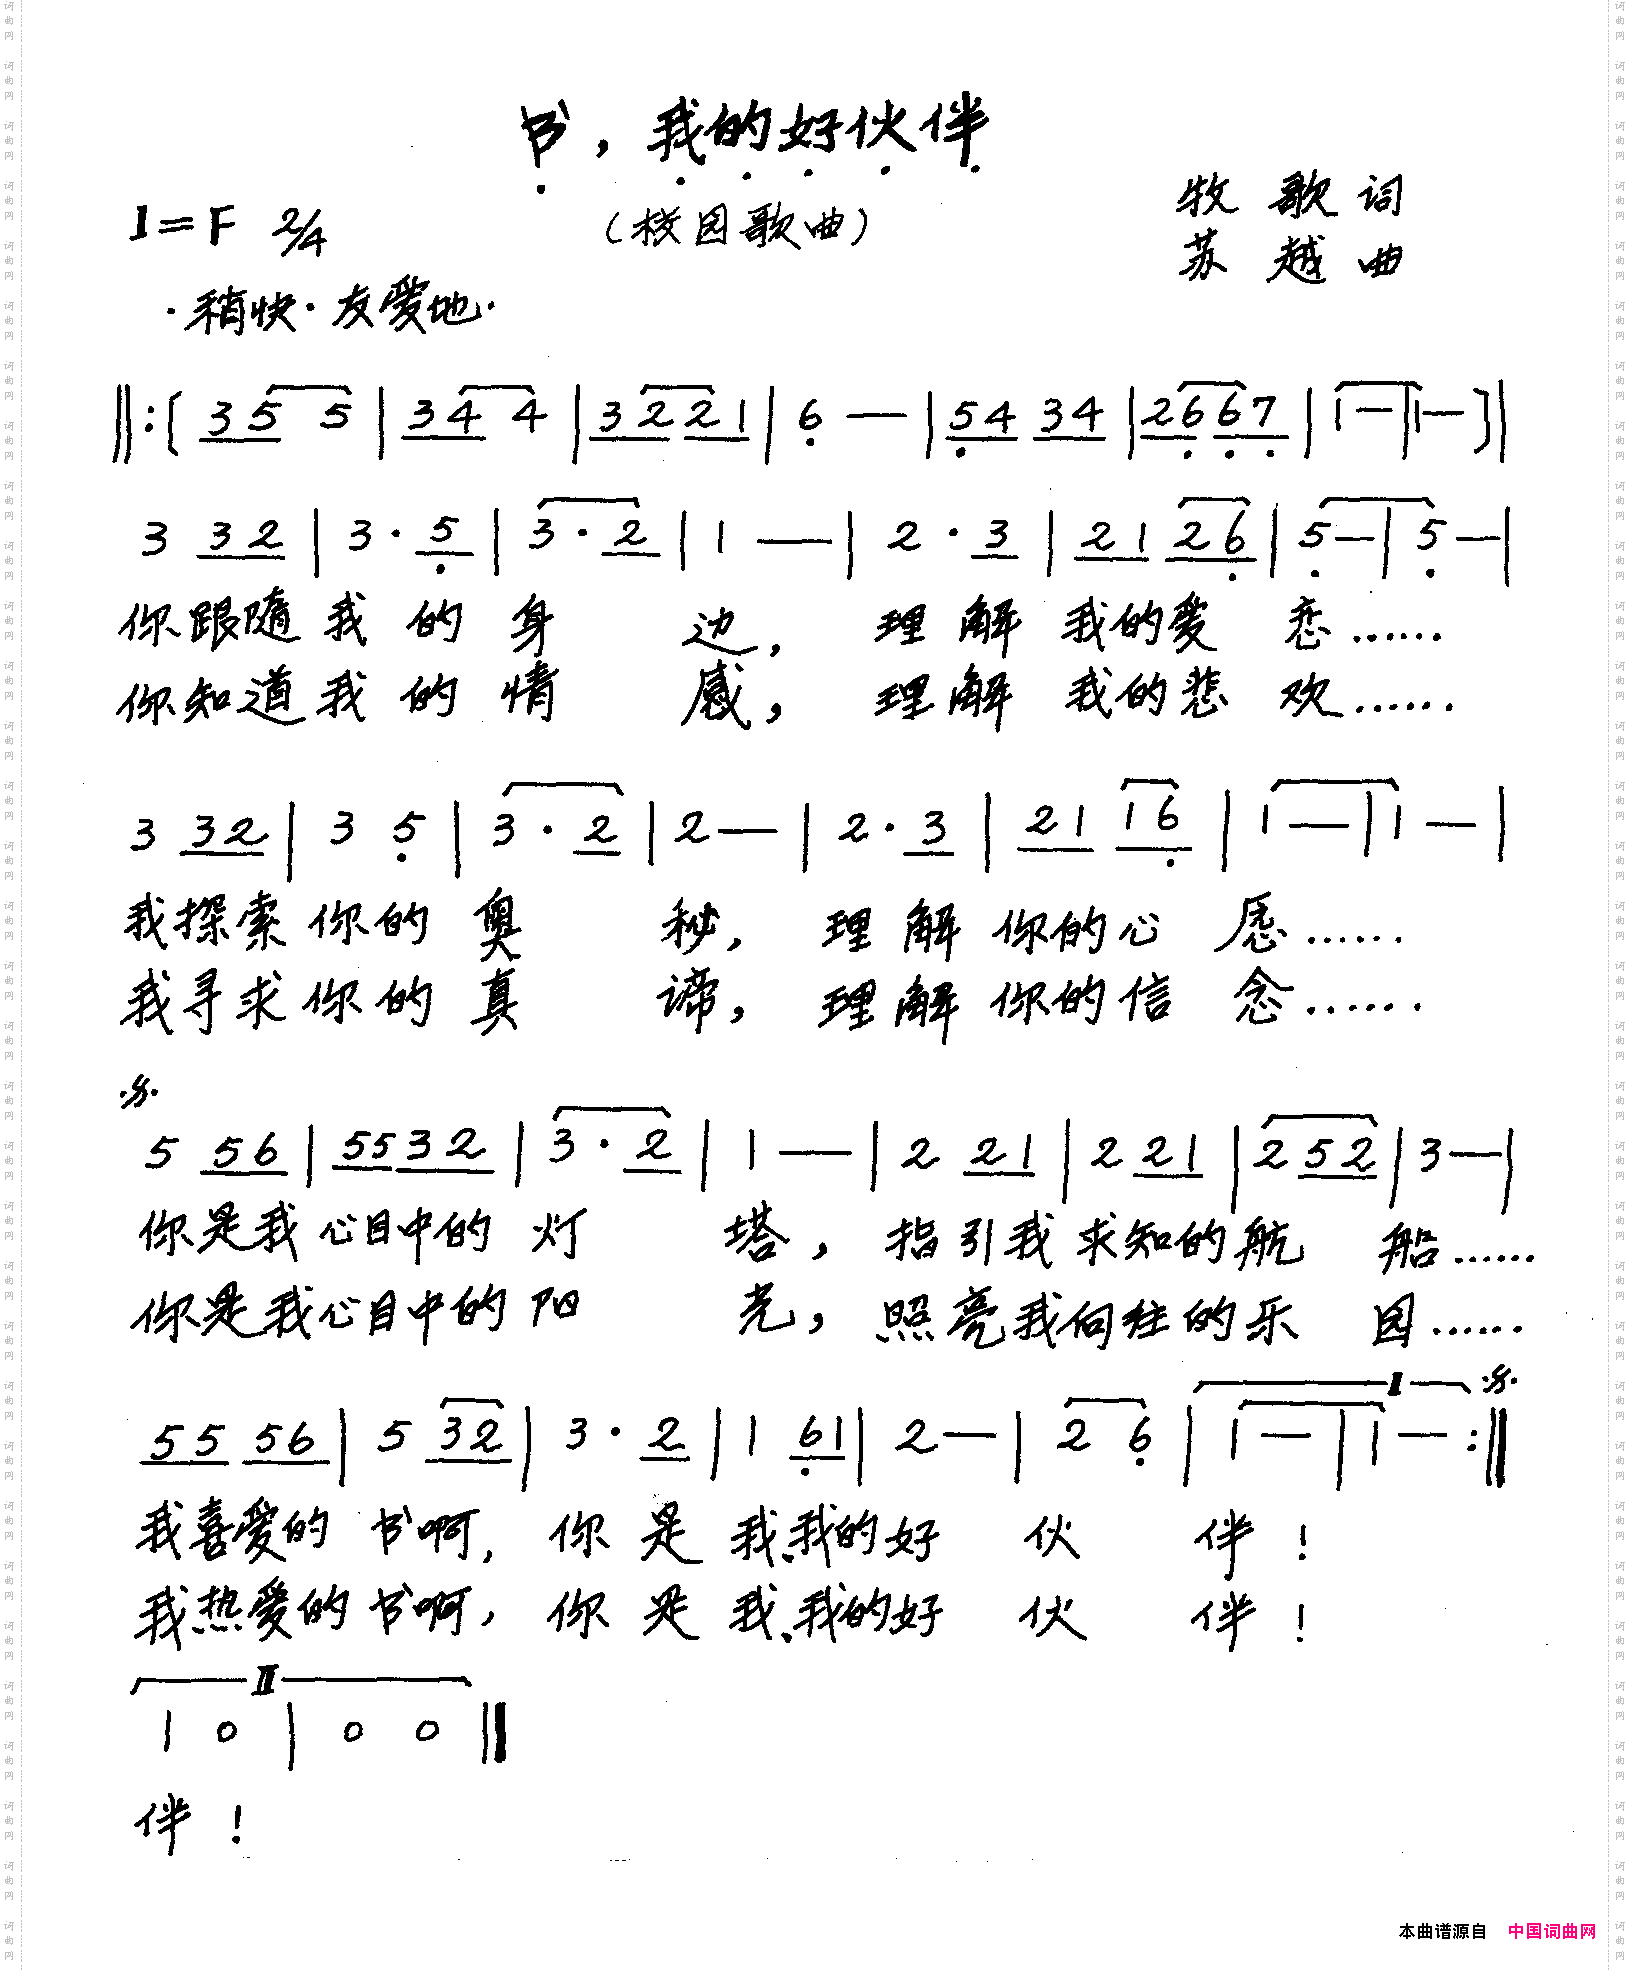 书，我的好伙伴
1=F 2/4
（校园歌曲）
牧 歌 词
苏 越 曲
·稍快·友爱地·
‖:〔3 5 5 | 3 4 4 | 3 2 2 1 | 6 — | 5 4 3 4 | 2 6 6 7 | 1 — | 1 — 〕|
3 3 2 | 3 · 5 | 3 · 2 | 1 — | 2 · 3 | 2 1 2 6 | 5 — | 5 — |
你跟随我的身边，理解我的爱恋……
你知道我的情感，理解我的悲欢……
3 3 2 | 3 5 | 3 · 2 | 2 — | 2 · 3 | 2 1 1 6 | 1 — | 1 — |
我探索你的奥秘，理解你的心愿……
我寻求你的真谛，理解你的信念……
5 5 6 | 5 5 3 2 | 3 · 2 | 1 — | 2 2 1 | 2 2 1 | 2 5 2 | 3 — |
你是我心目中的灯塔，指引我求知的航船……
你是我心目中的阳光，照亮我向往的乐园……
I
5 5 5 6 | 5 3 2 | 3 · 2 | 1 6 1 | 2 — | 2 6 | 1 — | 1 — :‖
我喜爱的书啊，你是我、我的好伙伴！
我热爱的书啊，你是我、我的好伙伴！
II
1 0 | 0 0 ‖
伴！
本曲谱源自 中国词曲网